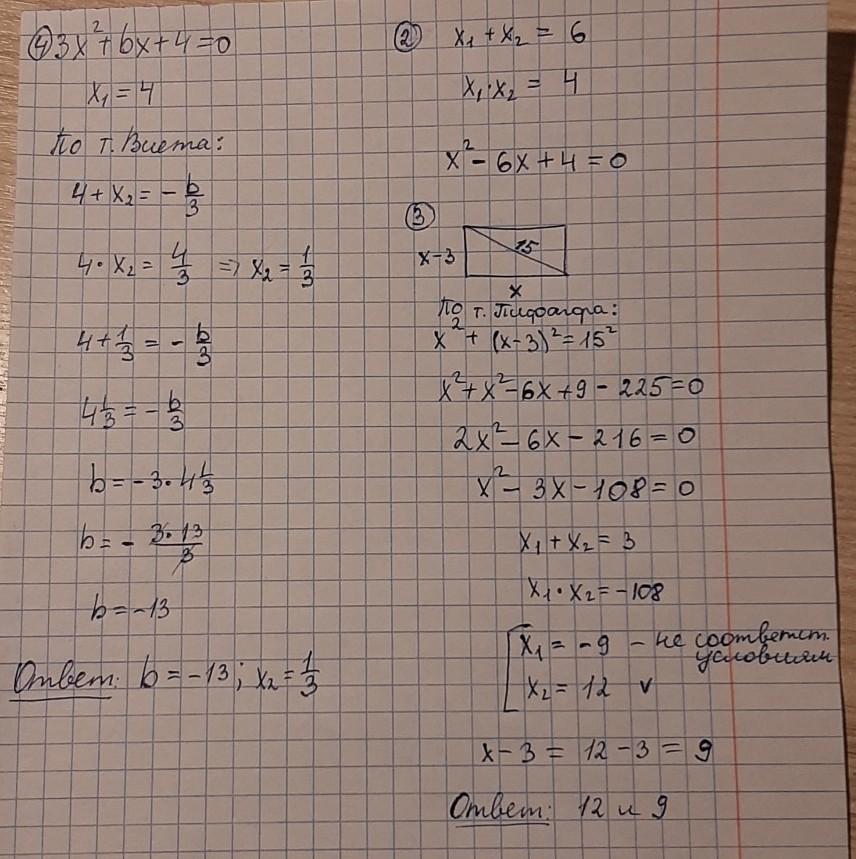 ④ 3x² + bx + 4 = 0
x₁ = 4
По т. Виета:
4 + x₂ = - b/3
4 · x₂ = 4/3 => x₂ = 1/3
4 + 1/3 = - b/3
4 1/3 = - b/3
b = -3 · 4 1/3
b = - 3·13/3
b = -13
Ответ: b = -13; x₂ = 1/3
② x₁ + x₂ = 6
x₁ · x₂ = 4
x² - 6x + 4 = 0
③
15
x-3
x
По т. Пифагора:
x² + (x-3)² = 15²
x² + x² - 6x + 9 - 225 = 0
2x² - 6x - 216 = 0
x² - 3x - 108 = 0
x₁ + x₂ = 3
x₁ · x₂ = -108
[ x₁ = -9 - не соответст.
условиям
x₂ = 12 v
x - 3 = 12 - 3 = 9
Ответ: 12 и 9